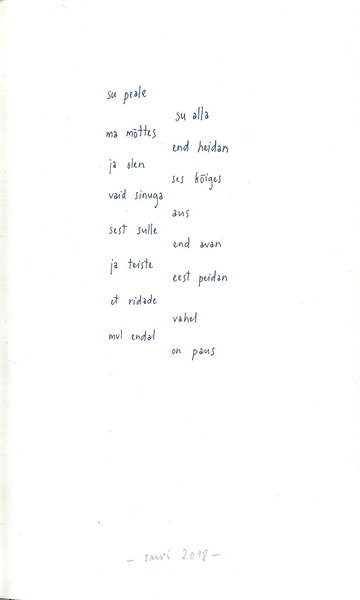 su peale
su alla
ma mõttes
end heidan
ja olen
ses kõiges
vaid sinuga
aus
sest sulle
end avan
ja teiste
eest peidan
et ridade
vahel
mul endal
on paus
– suvi 2018 –